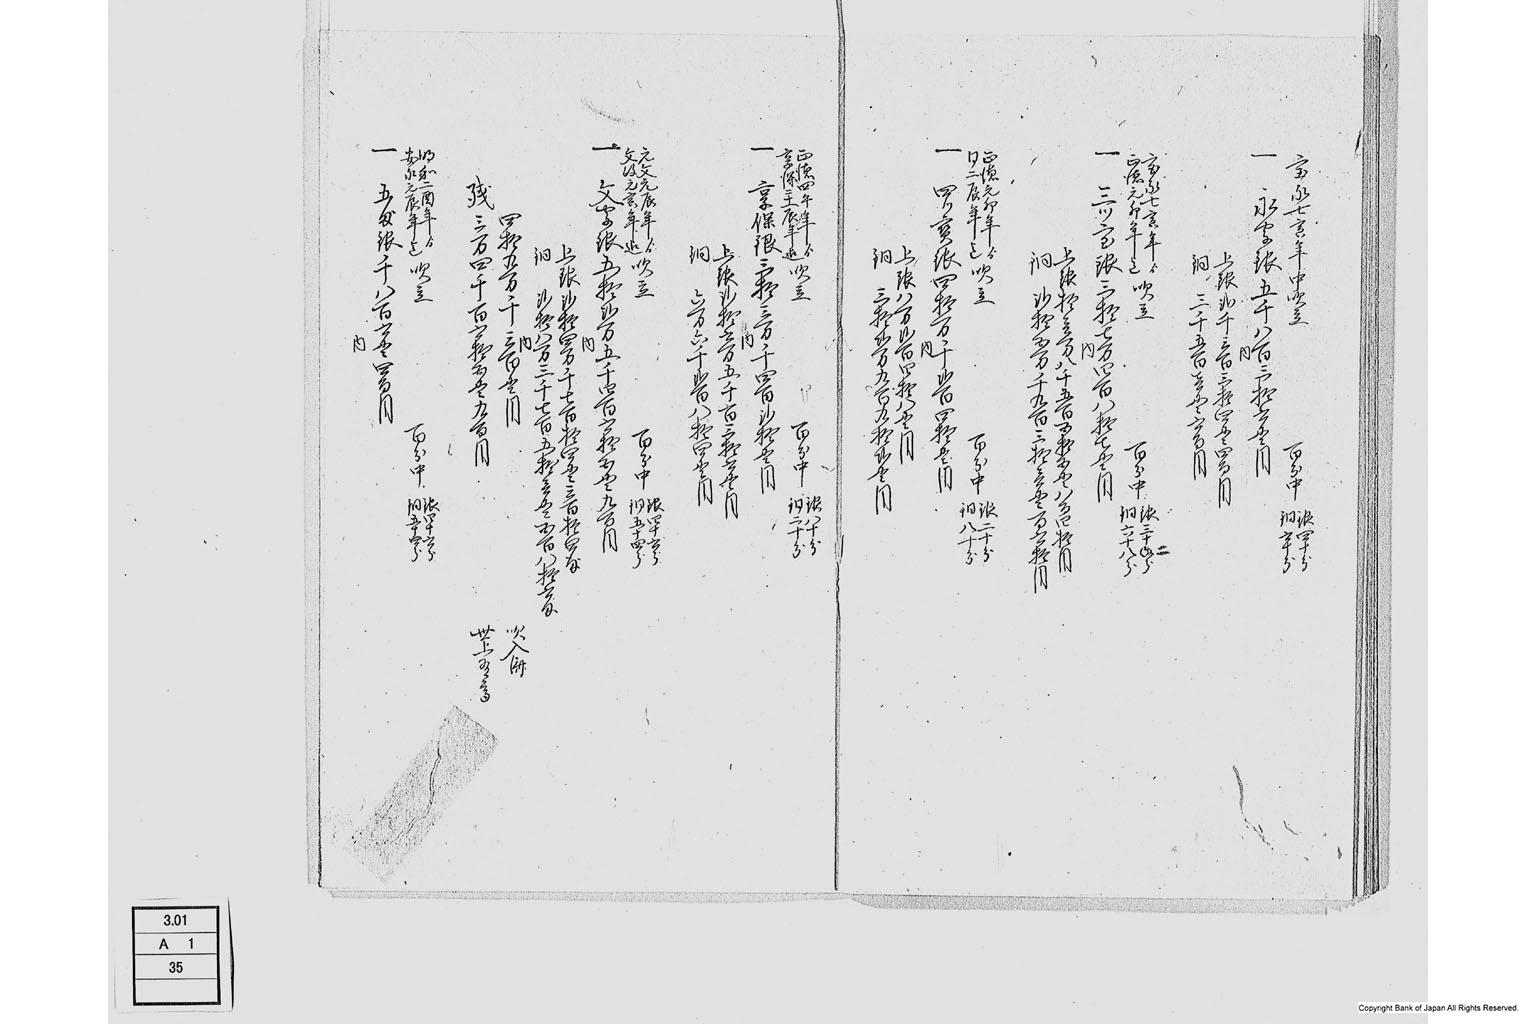 宝永七寅年中吹立
一 永字銀五千八百三拾六貫目
百分中 銀四十分
銅六十分
内
上銀弐千三百三拾四貫四百目
銅 三千五百壱貫六百目
宝永七寅年ゟ
正徳元卯年迄 吹立
一 三ツ宝銀三拾七万四百八拾七貫目
百分中 銀三十弐分
銅六十八分
内
上銀拾壱万八千五百五拾五貫八百四拾目
銅 弐拾五万千九百三拾壱貫百六拾目
正徳元卯年ゟ
同二辰年迄 吹立
一 四ツ宝銀四拾万千弐百四拾貫目
百分中 銀二十分
銅八十分
内
上銀八万弐百四拾八貫目
銅 三拾弐万九百九拾弐貫目
正徳四午年ゟ
享保二十一辰年迄 吹立
一 享保銀三拾三万千四百弐拾貫目
百分中 銀八十分
銅二十分
内
上銀弐拾六万五千百三拾六貫目
銅 六万六千弐百八拾四貫目
元文元辰年ゟ
文政元寅年迄 吹立
一 文字銀五拾弐万五千四百六拾五貫九百目
百分中 銀四十六分
銅五十四分
内
上銀弐拾四万千七百拾四貫三百拾四匁
銅 弐拾八万三千七百五拾壱貫五百八拾六匁
四拾九万千三百貫目
吹入済
残 三万四千百六拾五貫九百目
世上有高
明和二酉年ゟ
安永元辰年迄 吹立
一 五匁銀千八百六貫四百目
百分中 銀四十六分
銅五十四分
内
3.01
A 1
35
Copyright Bank of Japan All Rights Reserved.